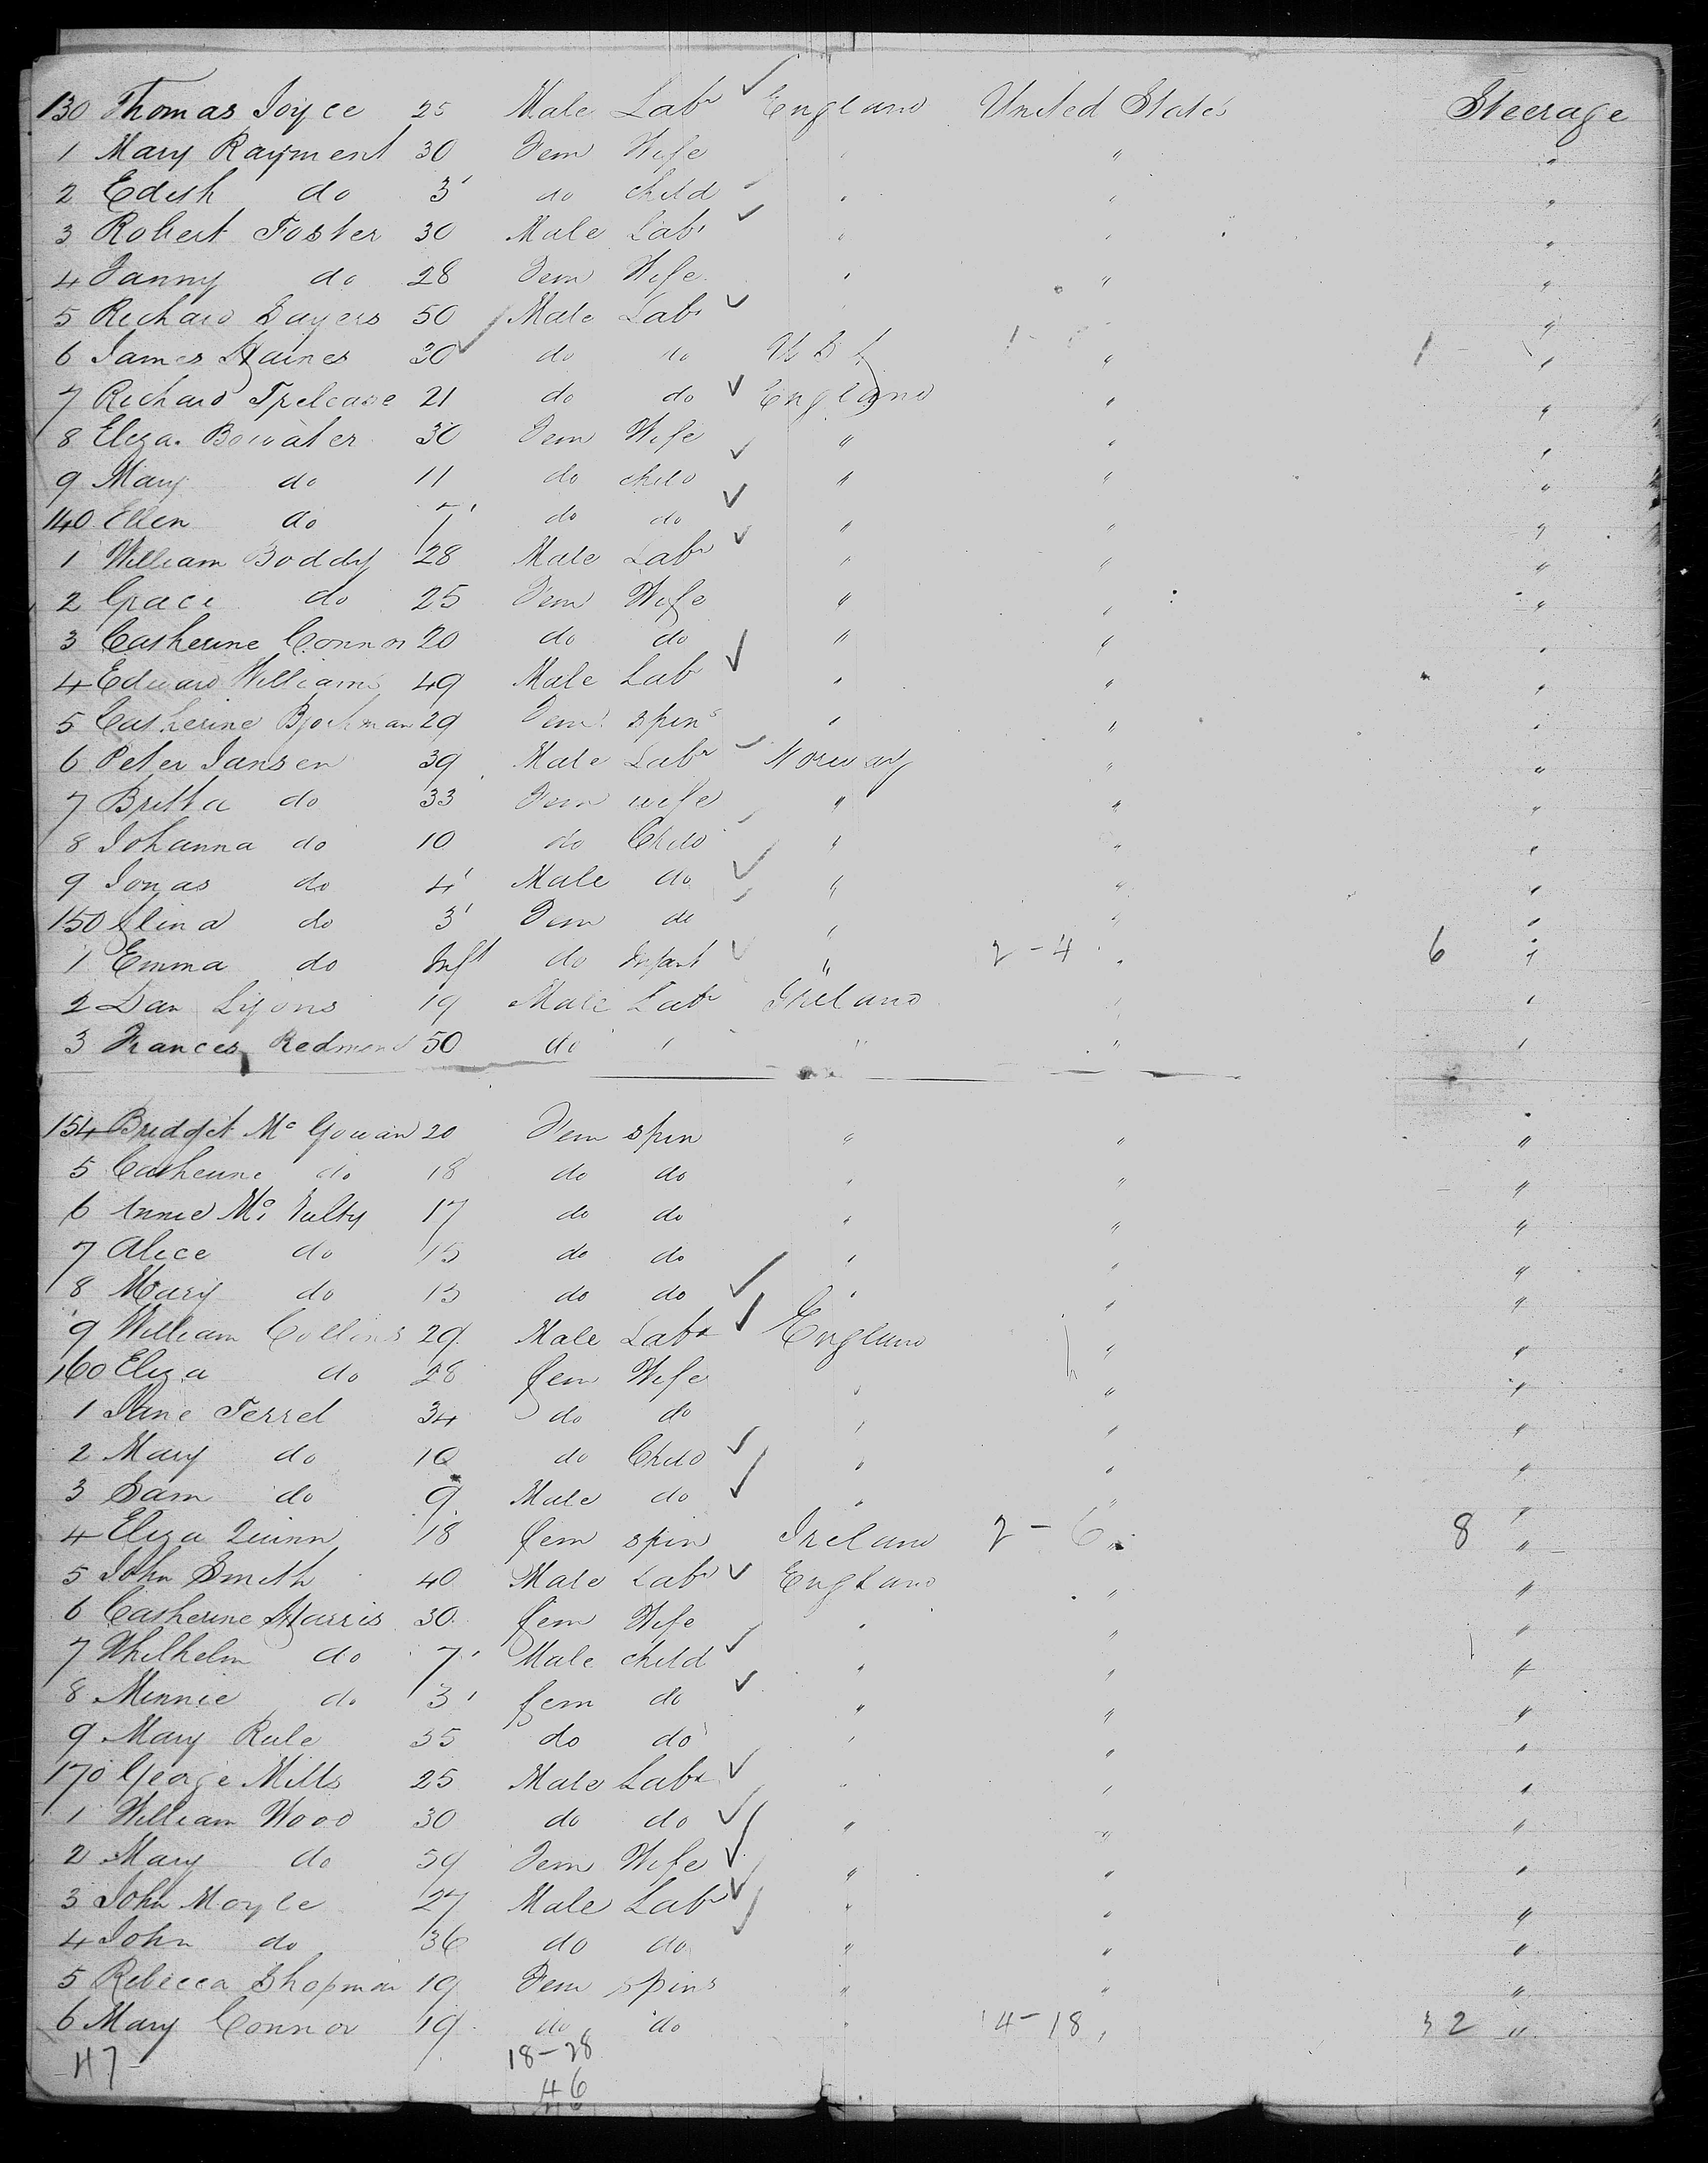 130 Thomas Joyce 25 Male Labr England United States Steerage
1 Mary Rayment 30 Fem Wife " " "
2 Edith do 3' do child " " "
3 Robert Foster 30 Male Labr " " "
4 Fanny do 28 Fem Wife " " "
5 Richard Sayers 50 Male Labr " " "
6 James Haines 30 do do U S A 1 - " 1 - "
7 Richard Trelease 21 do do England " "
8 Eliza Bowater 30 Fem Wife " " "
9 Mary do 11 do child " " "
140 Ellen do 7' do do " " "
1 William Boddy 28 Male Labr " " "
2 Grace do 25 Fem Wife " " "
3 Catherine Connor 20 do do " " "
4 Edward Williams 49 Male Labr " " "
5 Catherine Bjorkman 29 Fem spins " " "
6 Peter Jansen 39 Male Labr Norway " "
7 Britta do 33 Fem wife " " "
8 Johanna do 10 do Child " " "
9 Jonas do 4' Male do " " "
150 Elina do 3' Fem do " " "
1 Emma do Inft do Infant " 2 - 4 " 6 "
2 Dan Lyons 19 Male Labr Ireland " "
3 Frances Redmond 50 do " " " "
154 Bridget Mc Gowan 20 Fem spin " " "
5 Catherine do 18 do do " " "
6 Annie Mc Nulty 17 do do " " "
7 Alice do 15 do do " " "
8 Mary do 13 do do " " "
9 William Collins 29 Male Labr England " "
160 Eliza do 28 fem Wife " " "
1 Jane Terrel 34 do do " " "
2 Mary do 10 do Child " " "
3 Sam do 9 Male do " " "
4 Eliza Quinn 18 fem spin Ireland 2 - 6 " 8 "
5 John Smith 40 Male Labr England " "
6 Catherine Harris 30 fem Wife " " "
7 Whilhelm do 7' Male child " " "
8 Minnie do 3' fem do " " "
9 Mary Rule 35 do do " " "
170 George Mills 25 Male Labr " " "
1 William Wood 30 do do " " "
2 Mary do 59 Fem Wife " " "
3 John Moyle 27 Male Labr " " "
4 John do 36 do do " " "
5 Rebecca Shopman 19 Fem spins " " "
6 Mary Connor 19 do do " 14-18 " 32 "
47 18-28
46